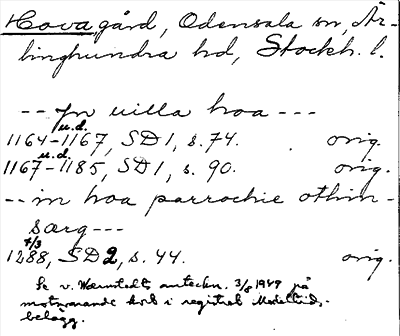 Hova, gård, Odensala sn, Är-
linghundra hd, Stockh. l.
-- In uilla hoa ---
u.d.
1164-1167, SD 1, s. 74. orig.
u.d.
1167-1185, SD 1, s. 90. orig.
-- in hoa parrochie othin-
sarg ---
4/3
1288, SD 2, s. 44. orig.
Se v. Wærnstedts anteckn. 3/8 1949 på
motsvarande kort i registret Medeltids-
belägg.